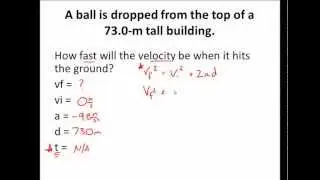 A ball is dropped from the top of a
73.0-m tall building.
How fast will the velocity be when it hits
the ground?
vf = ?
vi = 0 m/s
a = -9.8 m/s²
d = 730m
t = N/A
* Vf² = Vi² + 2ad
Vf² =